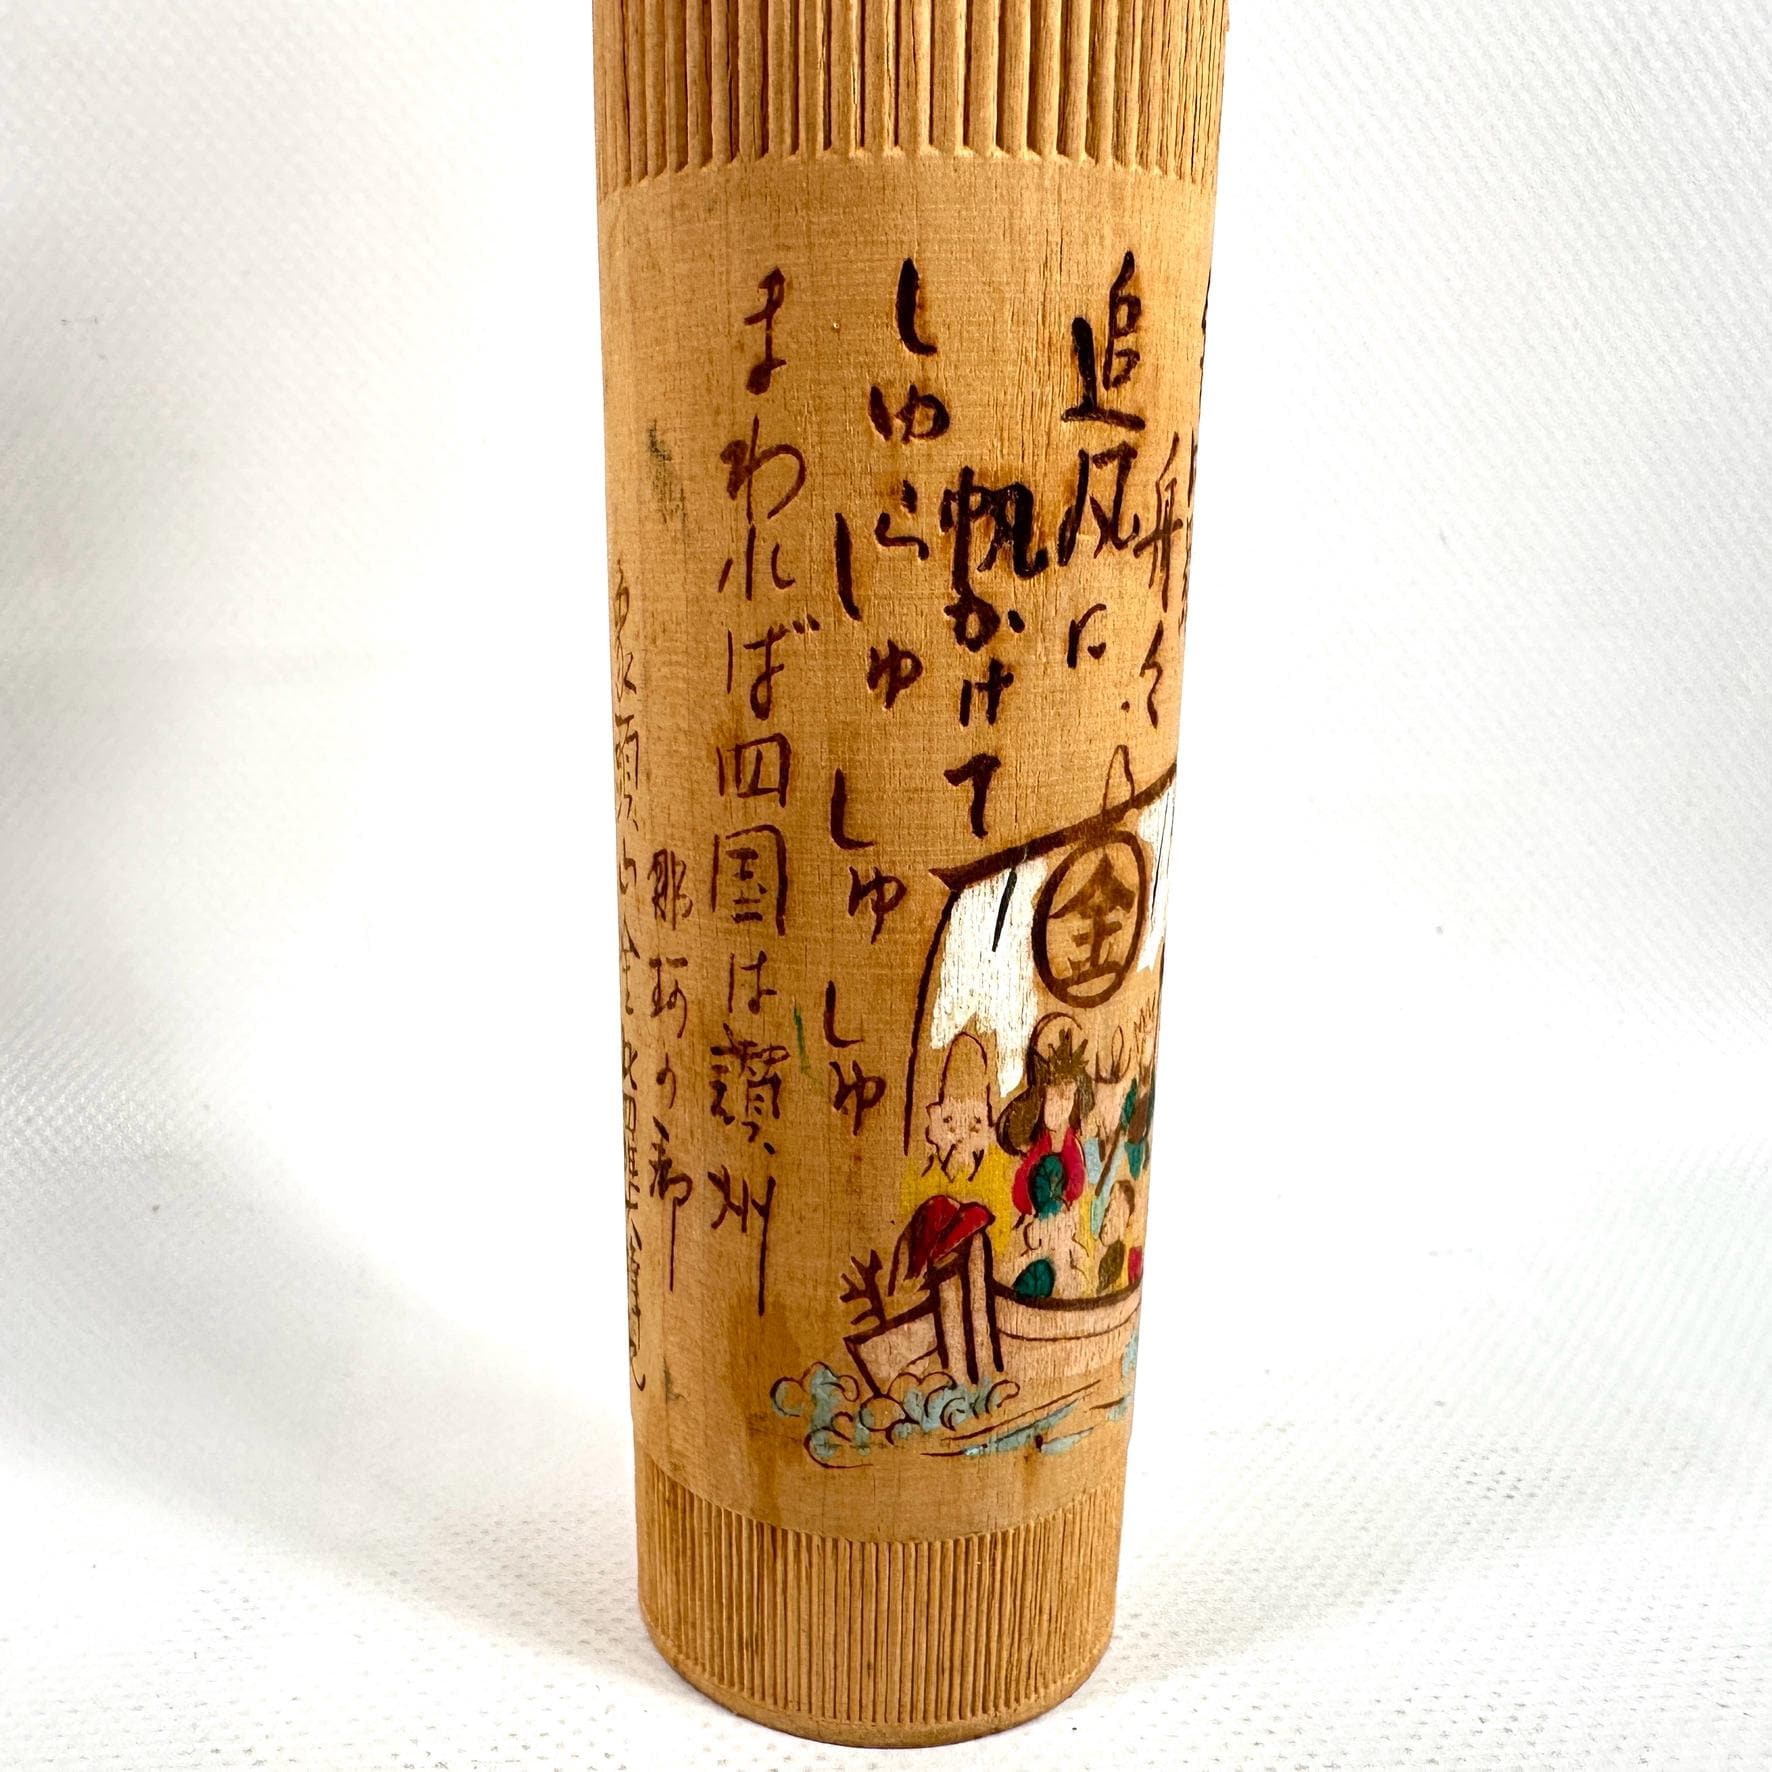 船々
追風に
帆かけて
しゆらしゆしゆしゆ
まわれば四国は讃州
那珂の郡
象頭山金
金